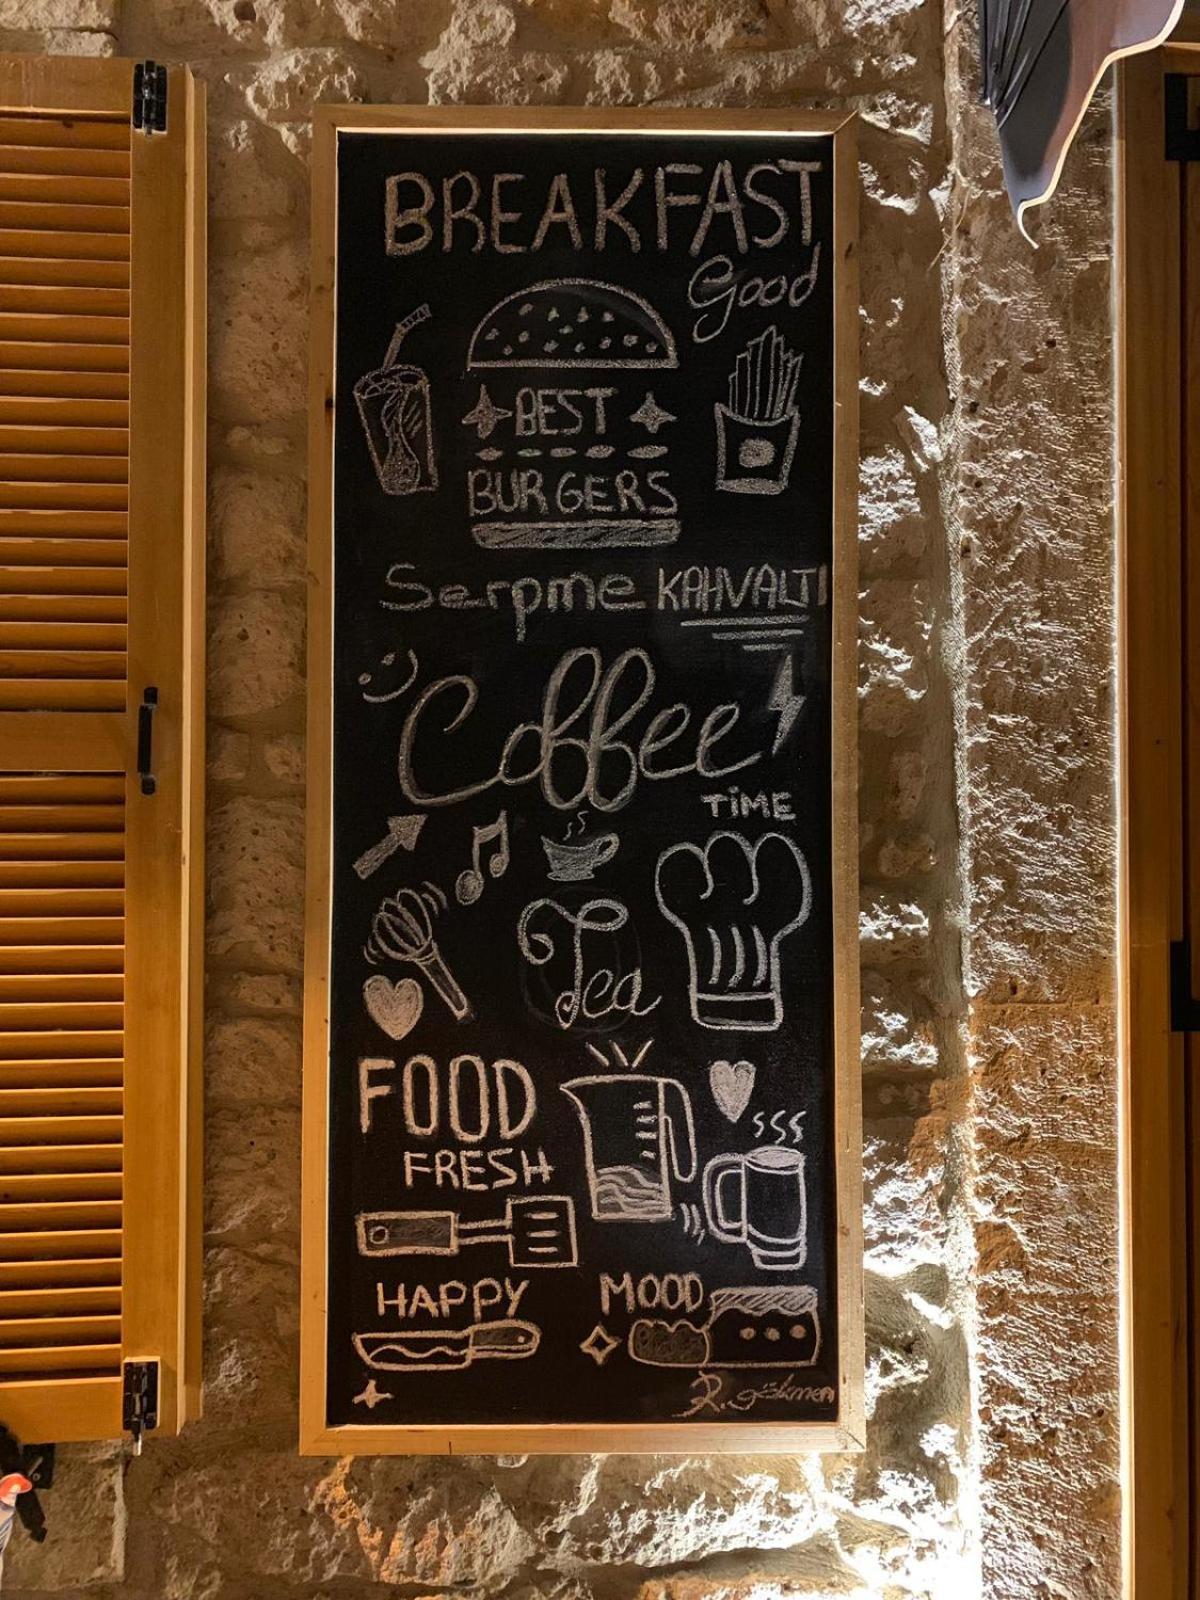 BREAKFAST
Good
BEST
BURGERS
Serpme KAHVALTI
Coffee
TiME
Tea
FOOD
FRESH
HAPPY MOOD
R. gökmen